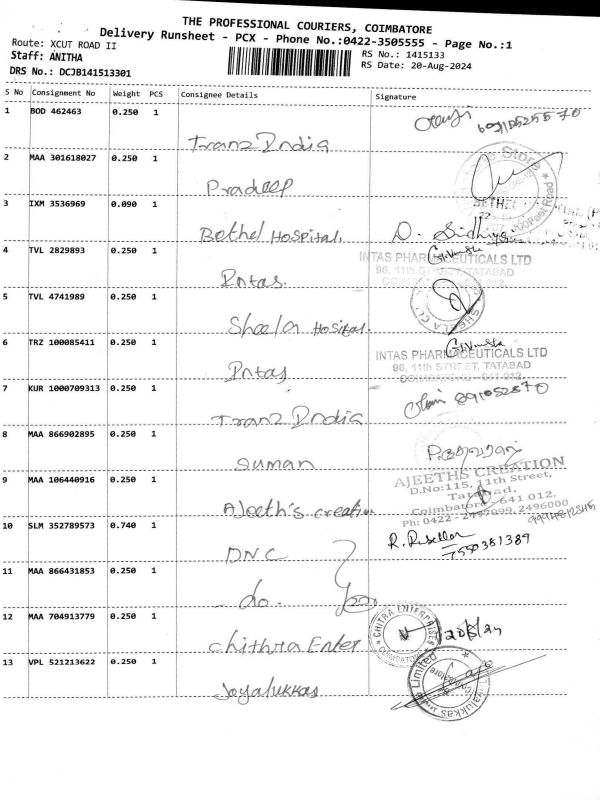 THE PROFESSIONAL COURIERS, COIMBATORE
Delivery Runsheet - PCX - Phone No.:0422-3505555 - Page No.:1
Route: XCUT ROAD II
RS No.: 1415133
Staff: ANITHA
RS Date: 20-Aug-2024
DRS No.: DCJB141513301
S No Consignment No Weight PCS Consignee Details Signature
1 BOD 462463 0.250 1
Tranz India
2 MAA 301618027 0.250 1
Pradeep
3 IXM 3536969 0.090 1 BETHEL
Bethel Hospital. D. Sidhiya
4 TVL 2829893 0.250 1
INTAS PHARMACEUTICALS LTD
96, 11th STREET, TATABAD
Intas.
5 TVL 4741989 0.250 1
Sheela Hosital.
6 TRZ 100085411 0.250 1
INTAS PHARMACEUTICALS LTD
96, 11th STREET, TATABAD
COIMBATORE - 641 012.
Intas
7 KUR 1000709313 0.250 1
Tranz India
8 MAA 866902895 0.250 1
suman
9 MAA 106440916 0.250 1
AJEETHS CREATION
D.No:115, 11th Street,
Tatabad,
Coimbatore - 641 012.
Ph: 0422 - 2497699, 2496000
Ajeeth's creation
10 SLM 352789573 0.740 1
7550381389
DNC
11 MAA 866431853 0.250 1
do.
12 MAA 704913779 0.250 1
CHITRA ENTERPRISES
COIMBATORE
20/8/24
chithra Enter
13 VPL 521213622 0.250 1
Joyalukkas